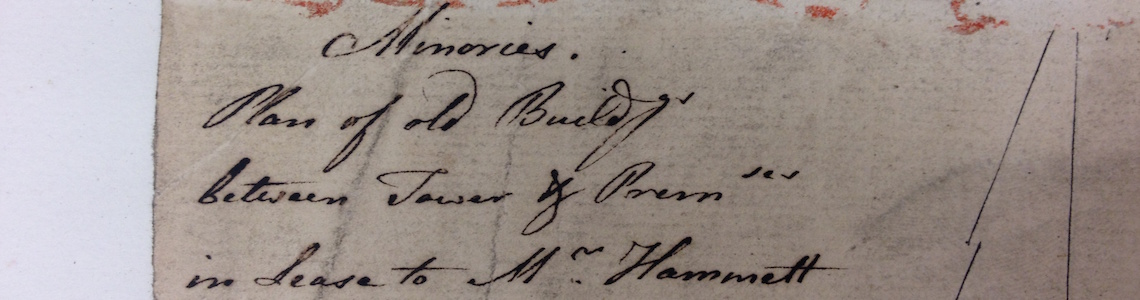 Minories.
Plan of old Buildgs
between Tower & Premses
in Lease to Mr. Hammett